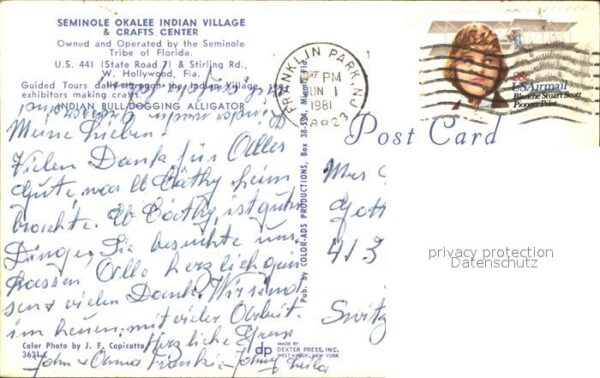 SEMINOLE OKALEE INDIAN VILLAGE
& CRAFTS CENTER
Owned and Operated by the Seminole
Tribe of Florida
U.S. 441 (State Road 7) & Stirling Rd.,
W. Hollywood, Fla.
Guided Tours daily through the Indian Village
exhibitors making crafts.
INDIAN BULL-DOGGING ALLIGATOR
Meine Lieben!
Vielen Dank für Alles
Gute, was
heim
brachte.
ist guter
Dinge. Sie besuchte uns.
Lassen Alle herzlich grüs
sen & vielen Dank. Wir sind
im neuen mit vieler Arbeit.
Herzliche Grüsse
John & Anna Frankie Johnny Sheila
Color Photo by J. F. Capicotto
Pub. by COLOR-ADS PRODUCTIONS, Box 38-591, Miami, Fla.
FRANKLIN PARK, N.J.
PM
JUN 1
1981
08823
USAirmail
Blanche Stuart Scott
Pioneer Pilot
Post Card
Mrs
413
privacy protection
Datenschutz
Switz
dp
MADE BY
DEXTER PRESS, INC.
WEST NYACK, NEW YORK